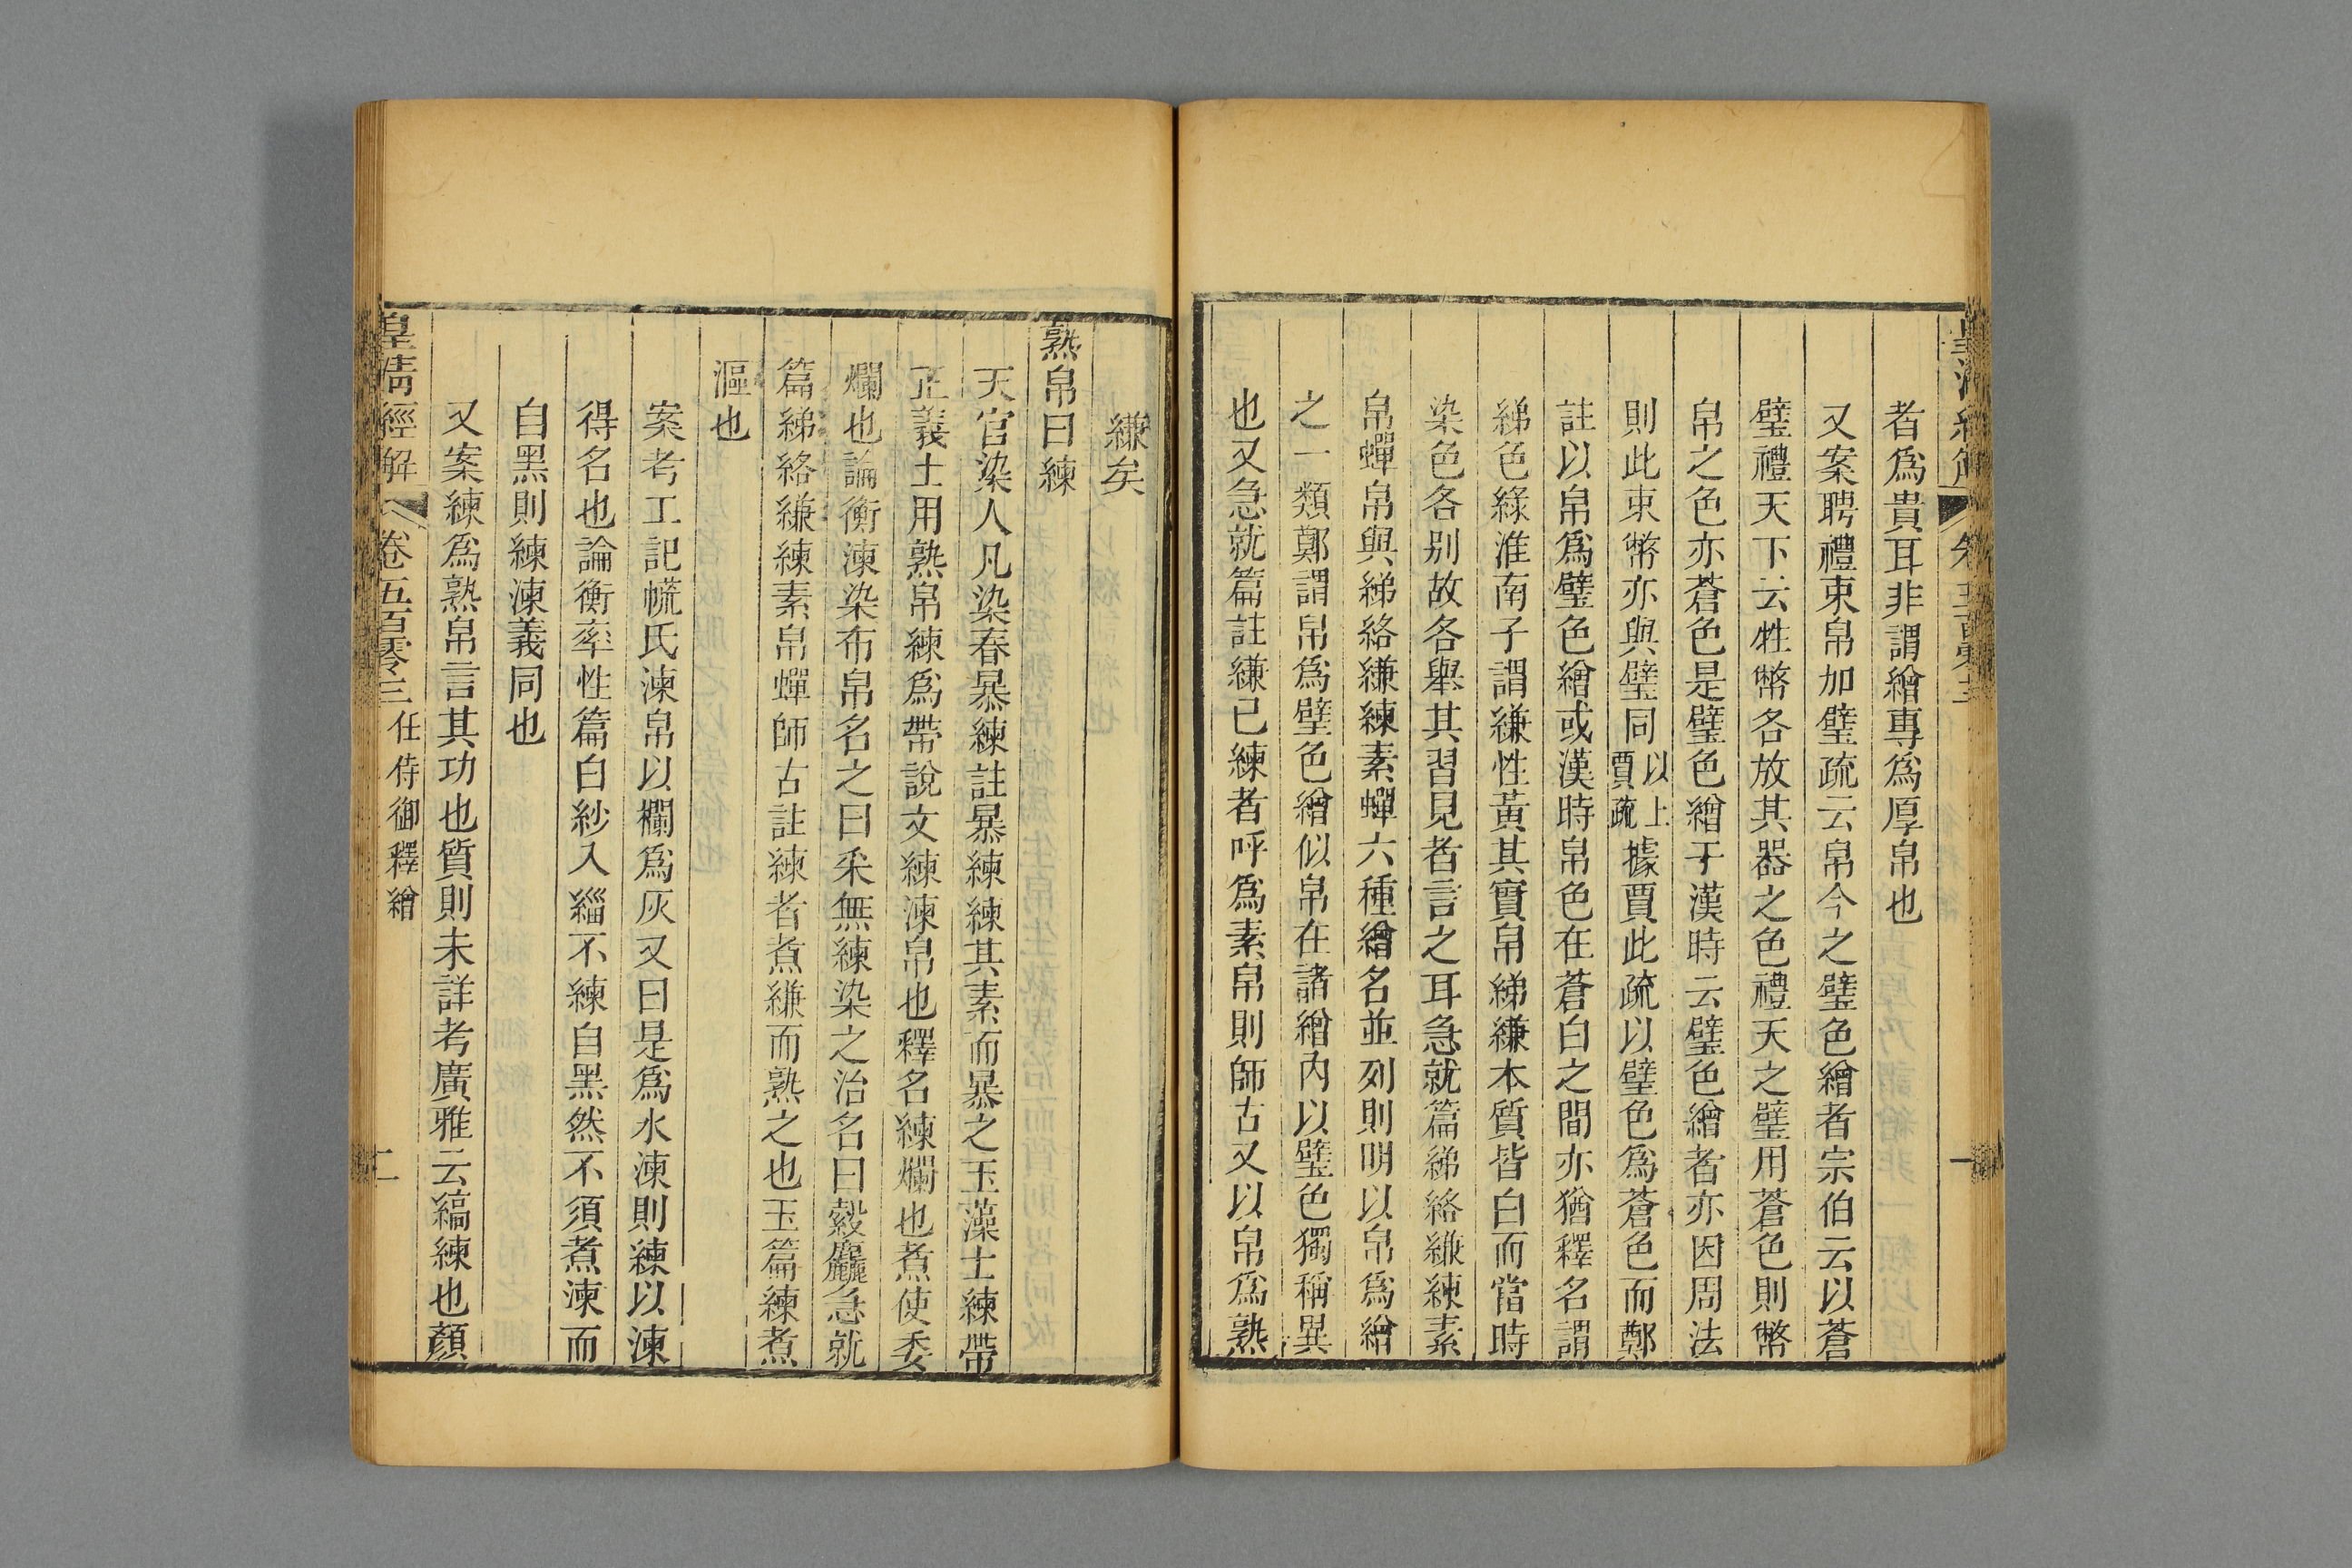 者爲貴耳非謂繒專爲厚帛也
又案聘禮束帛加璧疏云帛今之璧色繒者宗伯云以蒼
璧禮天下云牲幣各放其器之色禮天之璧用蒼色則幣
帛之色亦蒼色是璧色繒于漢時云璧色繒者亦因周法
則此束幣亦與璧同以上賈疏據賈此疏以璧色爲蒼色而鄭
註以帛爲璧色繒或漢時帛色在蒼白之間亦猶釋名謂
綈色綠淮南子謂縑性黃其實帛綈縑本質皆白而當時
染色各别故各舉其習見者言之耳急就篇綈絡縑練素
帛蟬帛與綈絡縑練素蟬六種繒名並列則明以帛爲繒
之一類鄭謂帛爲璧色繒似帛在諸繒內以璧色獨稱異
也又急就篇註縑已練者呼爲素帛則師古又以帛爲熟
縑矣
熟帛曰練
天官染人凡染春暴練註暴練練其素而暴之玉藻士練帶
正義士用熟帛練爲帶說文練湅帛也釋名練爛也煮使委
爛也論衡湅染布帛名之曰采無練染之治名曰縠麤急就
篇綈絡縑練素帛蟬師古註練者煮縑而熟之也玉篇練煮
漚也
案考工記㡛氏湅帛以欄爲灰又曰是爲水湅則練以湅
得名也論衡率性篇白紗入緇不練自黑然不須煮湅而
自黑則練湅義同也
又案練爲熟帛言其功也質則未詳考廣雅云縞練也顏
皇淸經解 卷五百零三 任侍御釋繒 二